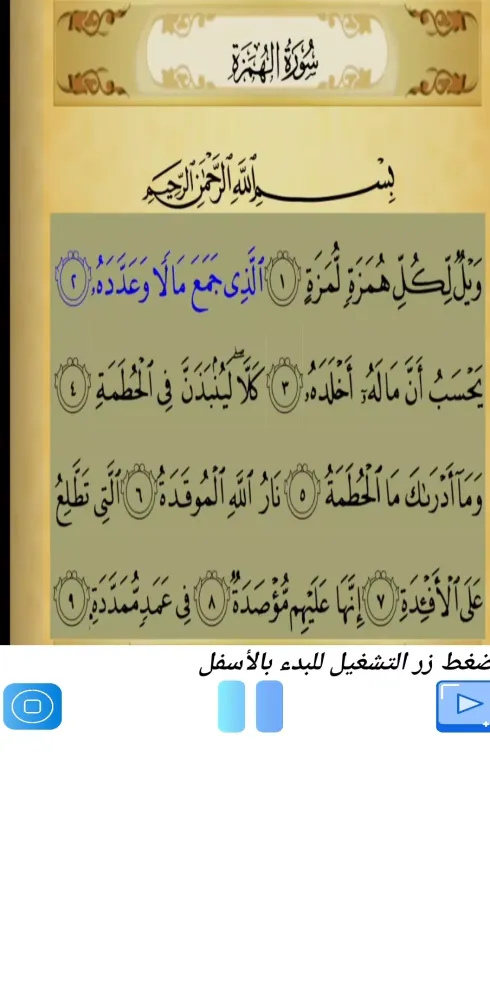 سُورَةُ الهُمَزَةِ
بِسْمِ اللَّهِ الرَّحْمَٰنِ الرَّحِيمِ
وَيْلٌ لِّكُلِّ هُمَزَةٍ لُّمَزَةٍ ١ ٱلَّذِى جَمَعَ مَالًا وَعَدَّدَهُۥ ٢
يَحْسَبُ أَنَّ مَالَهُۥٓ أَخْلَدَهُۥ ٣ كَلَّا ۖ لَيُنۢبَذَنَّ فِى ٱلْحُطَمَةِ ٤
وَمَآ أَدْرَىٰكَ مَا ٱلْحُطَمَةُ ٥ نَارُ ٱللَّهِ ٱلْمُوقَدَةُ ٦ ٱلَّتِى تَطَّلِعُ
عَلَى ٱلْأَفْـِٔدَةِ ٧ إِنَّهَا عَلَيْهِم مُّؤْصَدَةٌ ٨ فِى عَمَدٍ مُّمَدَّدَةٍۭ ٩
ضغط زر التشغيل للبدء بالأسفل